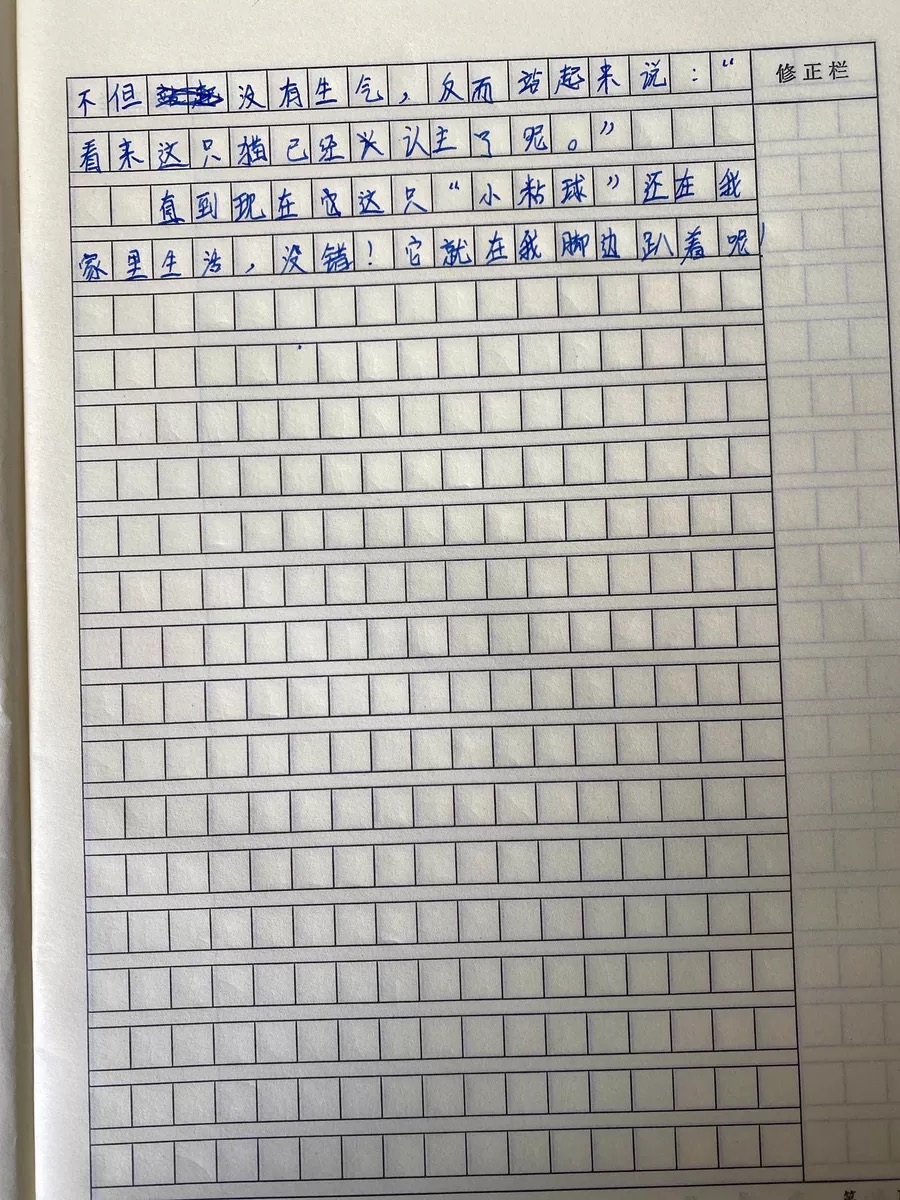 不但没有生气，反而站起来说：“
修正栏
看来这只猫已经认主了呢。”
直到现在它这只“小粘球”还在我
家里生活，没错！它就在我脚边趴着呢！
第